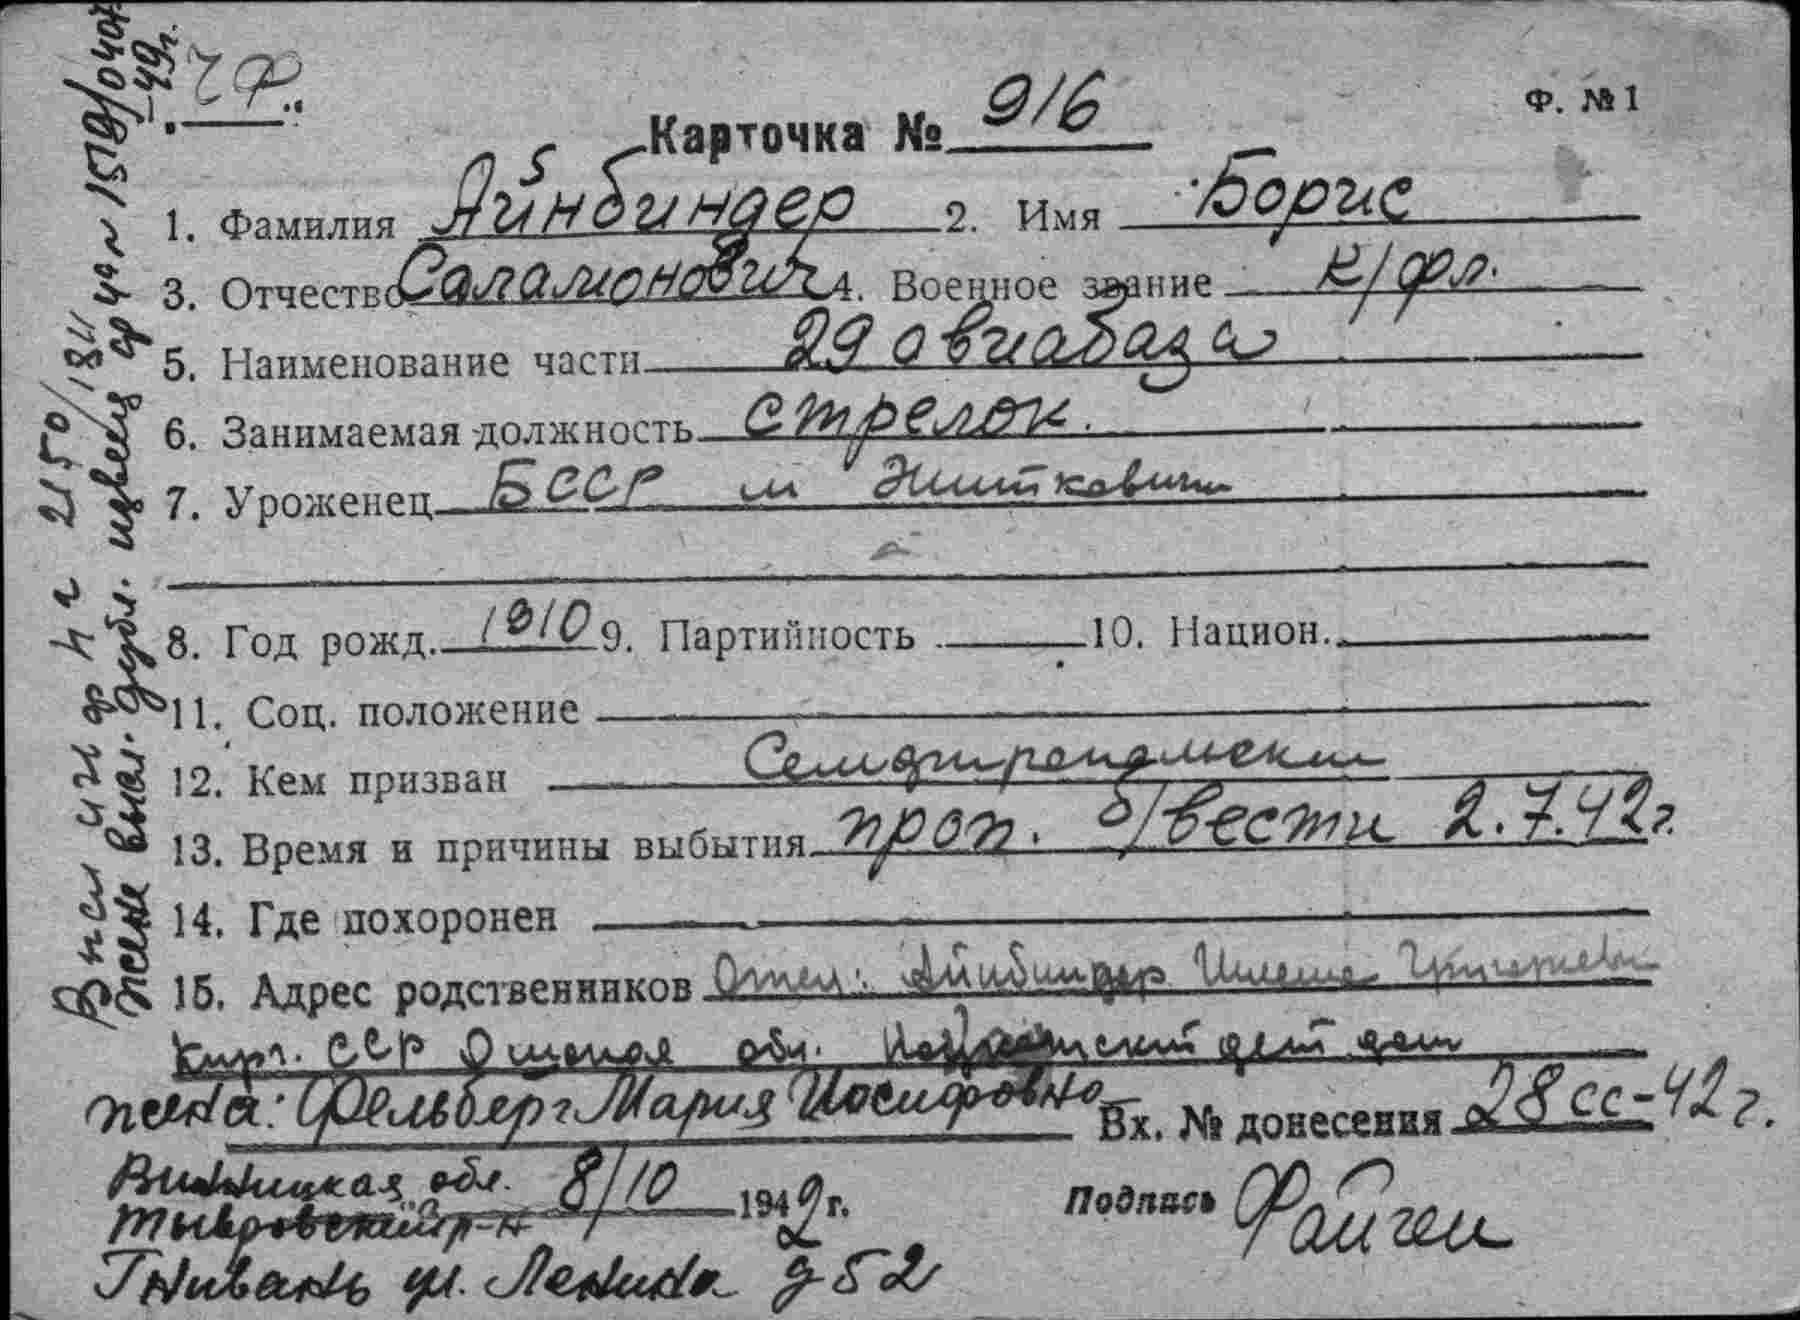 ЧФ
Ф. № 1
Карточка № 916
1. Фамилия Айнбиндер 2. Имя Борис
3. Отчество Саламонович 4. Военное звание к/фл.
5. Наименование части 29 авиабаза
6. Занимаемая должность стрелок.
7. Уроженец БССР м Житковичи
8. Год рожд. 1910 9. Партийность 10. Национ.
11. Соц. положение
12. Кем призван
13. Время и причины выбытия проп. б/вести 2.7.42г.
14. Где похоронен
15. Адрес родственников Отец: Айнбиндер
Кирг. ССР Ошская обл. дет дом
жена: Фельберг Мария Иосифовна Вх. № донесения 28сс-42г.
Винницкая обл. 8/10 1942 г. Подпись
Тывровский р-н
Гнивань ул. Ленина д 52
жене выс. дубл. извещ